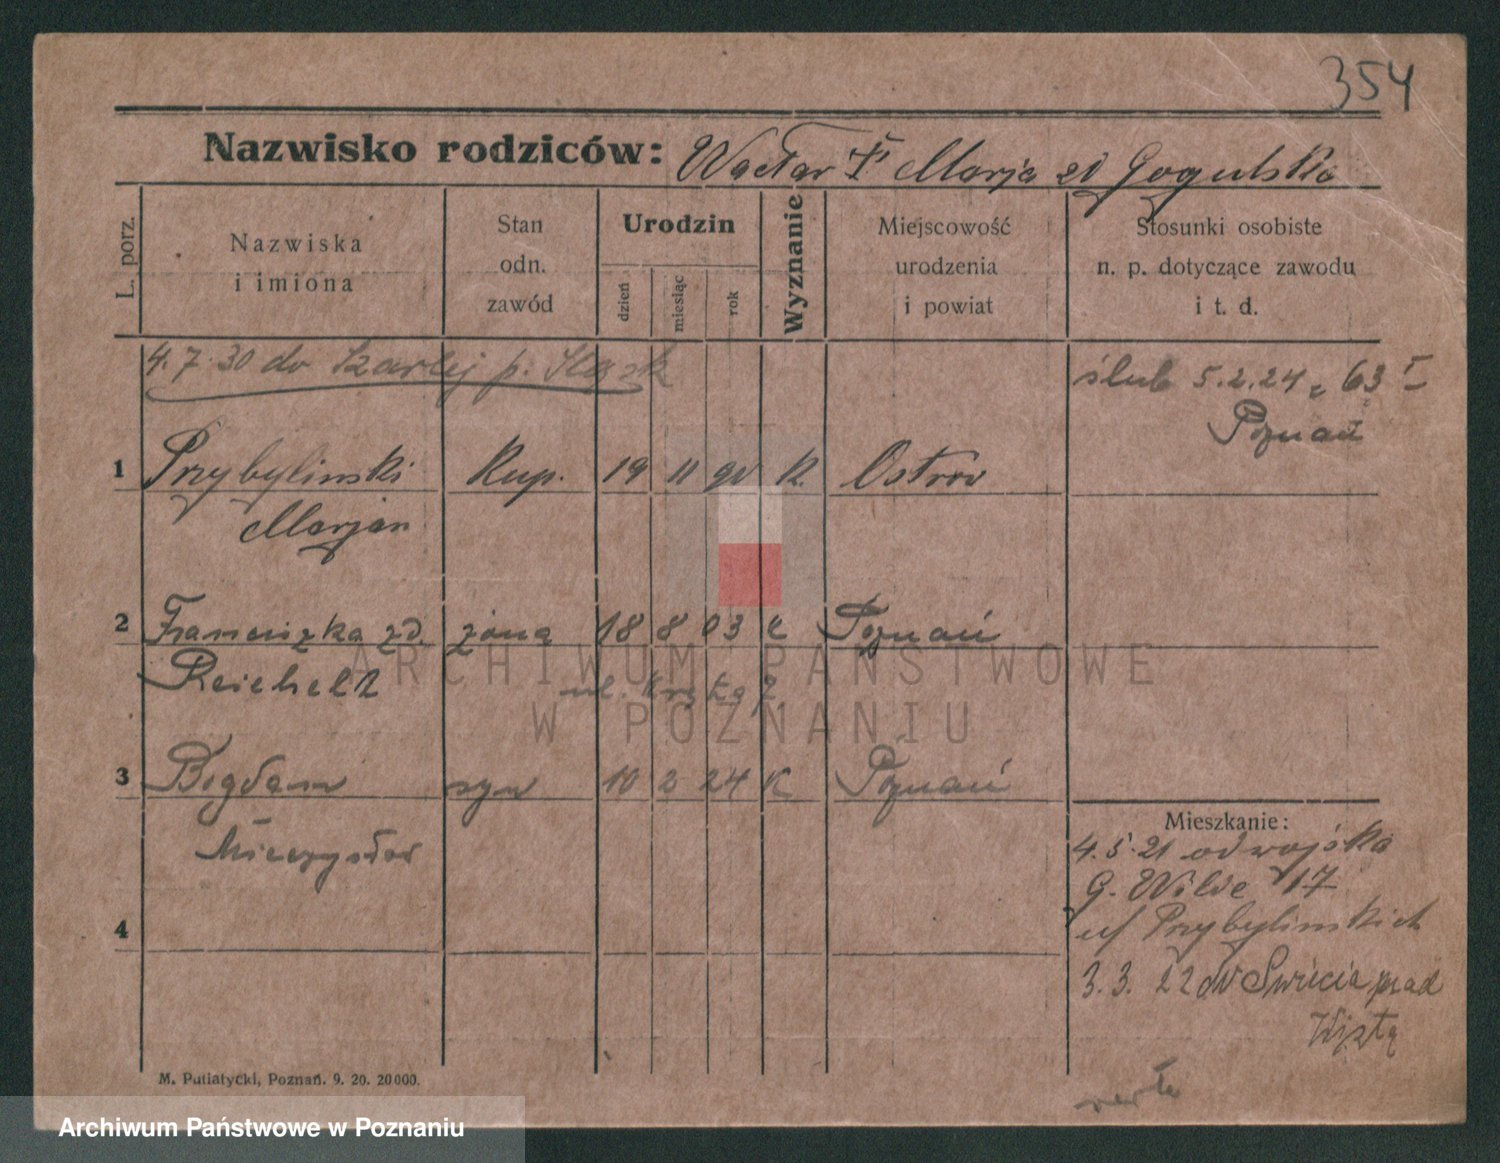 354
Nazwisko rodziców: Wacław Marja zd Gogulska
L. porz.
Nazwiska i imiona
Stan odn. zawód
Urodzin
dzień
miesiąc
rok
Wyznanie
Miejscowość urodzenia i powiat
Stosunki osobiste n. p. dotyczące zawodu i t. d.
4.7.30 do Szarlej p.
ślub 5.2.24 63 I
Poznań
1 Przybylinski Kup. 19 11 90 k. Ostrów
Marjan
2 Franciszka zd. żona 18 8 03 k Poznań
Reichelt ul. Kręta
ARCHIWUM PAŃSTWOWE
W POZNANIU
3 Bogdan syn 10 2 24 K Poznań
Mieczysław
Mieszkanie:
4.5.21 od wojska
G. Wilde 17
u/ Przybylinskich
4
3.3.22 do Swiecia nad
Wisłą
M. Putiatycki, Poznań. 9. 20. 20000.
Archiwum Państwowe w Poznaniu